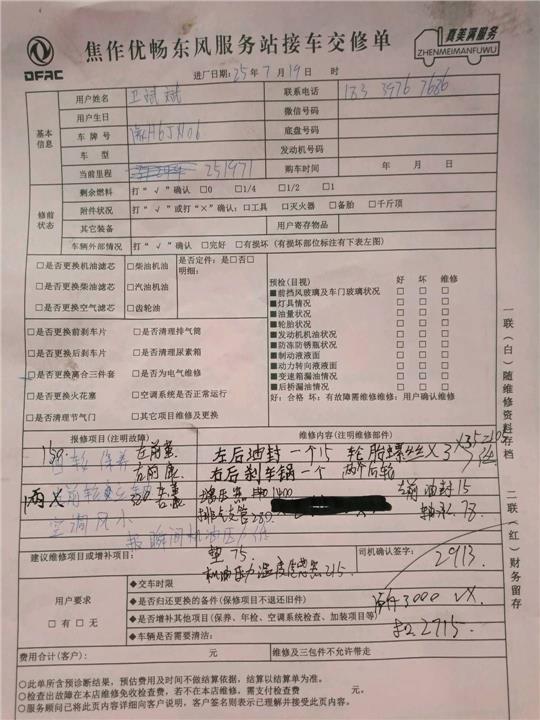 DFAC
焦作优畅东风服务站接车交修单
真美满服务
ZHENMEIMANFUWU
进厂日期：25年7月19日 时
基本信息
用户姓名 卫斌斌 联系电话 183 3976 7686
用户生日 微信号码
车牌号 底盘号码
车型 发动机号码
当前里程 251971 购车时间 年 月 日
修前状态
剩余燃料 打“√”确认 □0 □1/4 □1/2 □1
附件状况 打“√”或打“×”确认：□工具 □灭火器 □备胎 □千斤顶
其它装备 用户寄存物品
车辆外部情况 打“√”确认 □完好 □有损坏（有损坏部位标注有下表左图）
□是否更换机油滤芯 □柴油机油
□是否更换柴油滤芯 □汽油机油
□是否更换空气滤芯 □齿轮油
是否定件：是□否□
明细：
□是否更换前刹车片 □是否清理排气筒
□是否更换后刹车片 □是否清理尿素箱
□是否更换离合三件套 □是否为电气维修
□是否更换火花塞 □空调系统是否正常运行
□是否清理节气门 □其它项目维修及更换
预检(目视) 好 坏 维修
■前挡风玻璃及车门玻璃状况 □ □ □
■灯具情况 □ □ □
■油量状况 □ □ □
■轮胎状况 □ □ □
■发动机机油状况 □ □ □
■防冻防锈瓶状况 □ □ □
■制动液液面 □ □ □
■动力转向液液面 □ □ □
■变速箱漏油情况 □ □ □
■后桥漏油情况 □ □ □
好：合格 坏：有故障需维修维修：用户确认维修
报修项目（注明故障） 维修内容（注明维修部件）
150 保养 左前 左后油封一个15 轮胎螺丝×3
左前 右后刹车锅一个 两个后轮
两× 1400 左前油封15
空调风小 排气支管280 轴承78
瞬间机油压力低
垫75
机油压力温度传感器215
建议维修项目或增补项目： 司机确认签字： 2913
用户要求
□有 □无
◆交车时限
◆是否归还更换的备件(保修项目不退还旧件) 3000
◆是否增补其他项目(保养、年检、空调系统检查、加装项目等) 2715
◆车辆是否需要清洁：
费用合计(客户) 元 维修及三包件不允许带走
○此单所含预诊断结果，预估费用及时间不做结算依据，结算以结算单为准。
○检查出故障在本店维修免收检查费，若不在本店维修，需支付检查费 元。
○服务顾问已将此页内容详细向客户说明，客户签名则表示已理解并接受此页内容。
一联（白）随维修资料存档
二联（红）财务留存